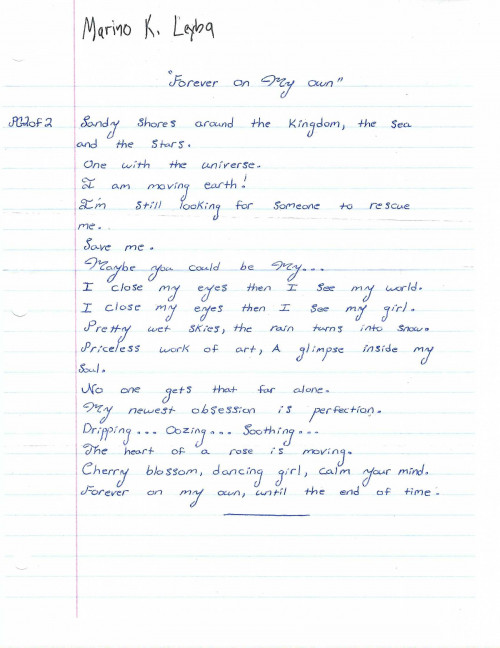 Marino K. Leyba
"Forever on My own"
PG2of2
Sandy shores around the Kingdom, the sea
and the stars.
One with the universe.
I am moving earth!
I'm still looking for someone to rescue
me.
Save me.
Maybe you could be My...
I close my eyes then I see my world.
I close my eyes then I see my girl.
Pretty wet skies, the rain turns into snow.
Priceless work of art, A glimpse inside my
soul.
No one gets that far alone.
My newest obsession is perfection.
Dripping... Oozing... Soothing...
The heart of a rose is moving.
Cherry blossom, dancing girl, calm your mind.
Forever on my own, until the end of time.